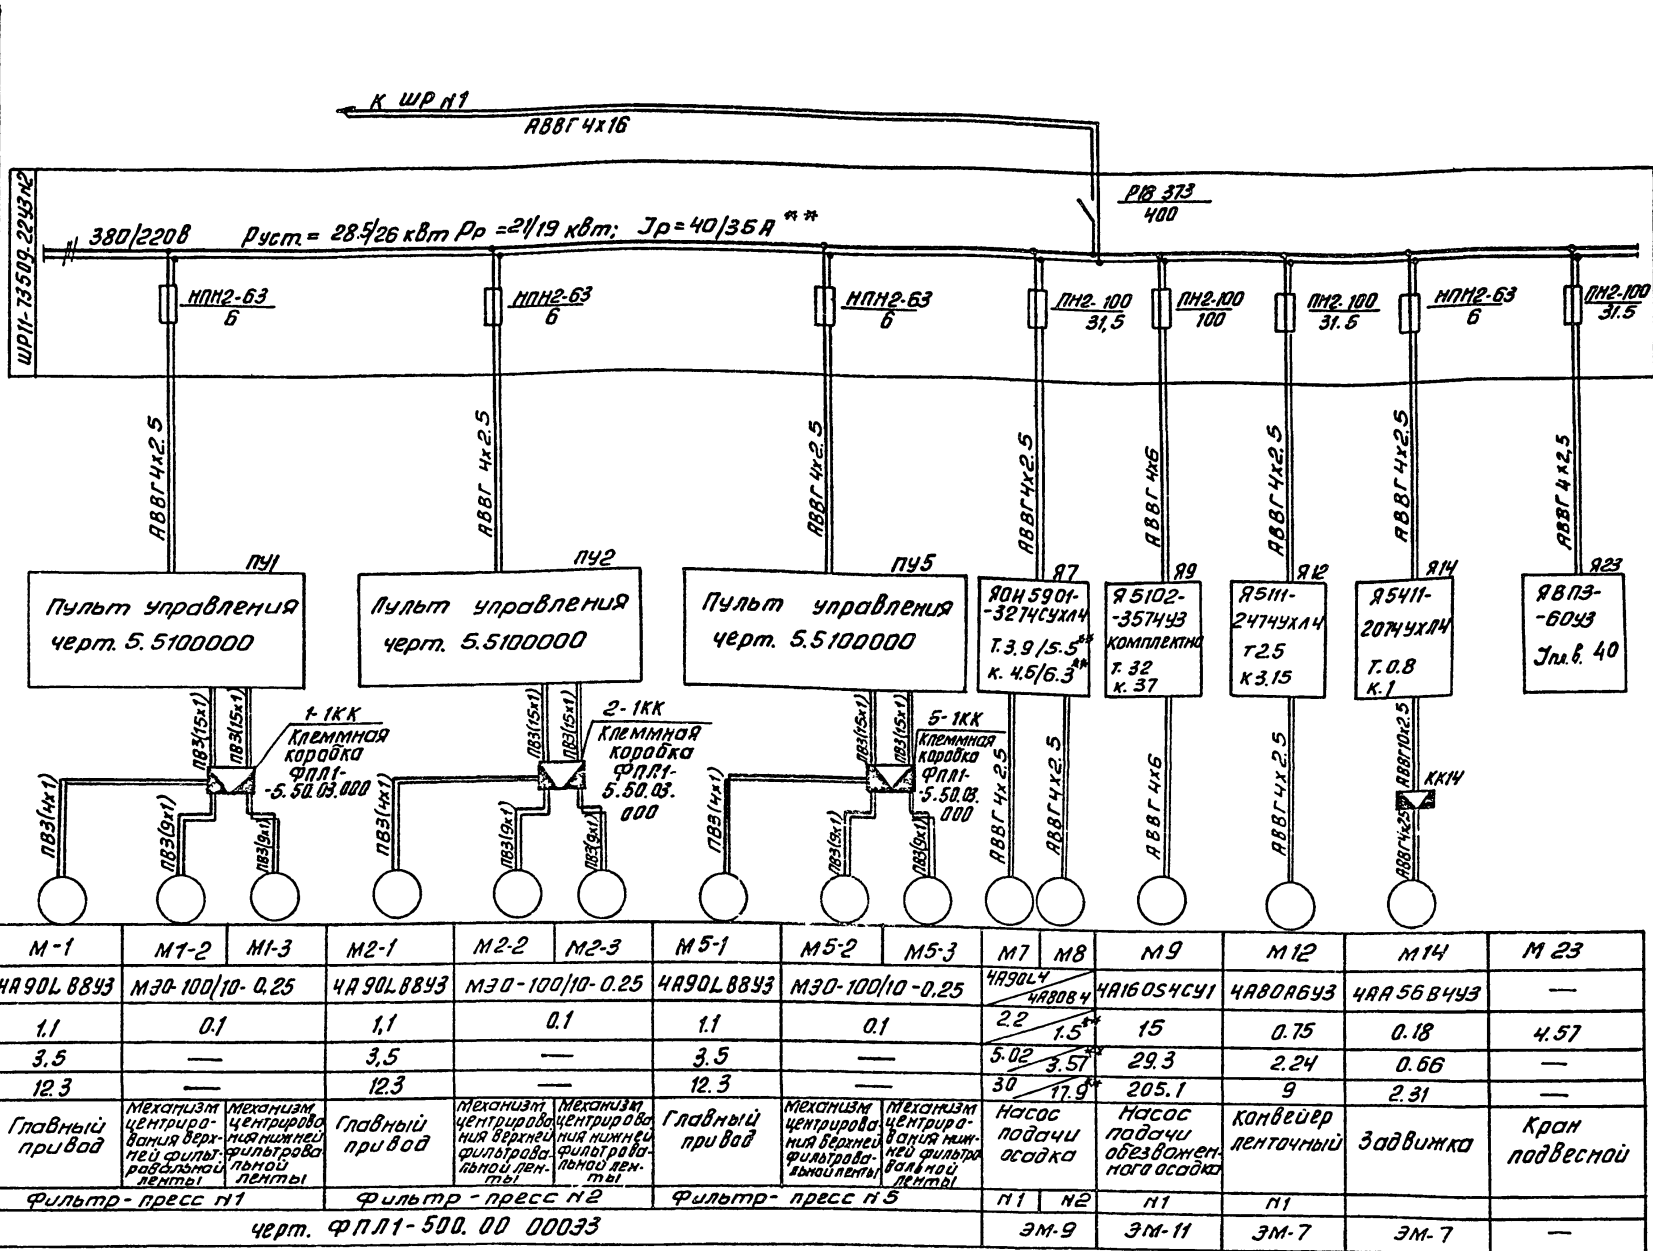 К ШР N1
АВВГ 4х16
ШР11-73509-22У3 N2
Р18 373
400
380/220В Руст.= 28.5/26 квт Рр =21/19 квт; Iр=40/36А **
НПН2-63
6
НПН2-63
6
НПН2-63
6
ПН2-100
31,5
ПН2-100
100
ПН2-100
31.5
НПН2-63
6
ПН2-100
31.5
АВВГ 4х2.5
АВВГ 4х2.5
АВВГ 4х2.5
АВВГ 4х2.5
АВВГ 4х6
АВВГ 4х2.5
АВВГ 4х2.5
АВВГ 4х2,5
ПУ1
Пульт управления
черт. 5.5100000
ПУ2
Пульт управления
черт. 5.5100000
ПУ5
Пульт управления
черт. 5.5100000
Я7
ЯОИ 5901-
-3274СУХЛ4
Т.3.9/5.5**
к. 4.6/6.3**
Я9
Я 5102-
-3574У3
комплектно
т. 32
к. 37
Я12
Я5111-
2474УХЛ4
т2.5
к3.15
Я14
Я5411-
2074УХЛ4
Т.0.8
к.1
Я23
ЯВПЗ-
-60У3
Iпл.в. 40
ПВ3(15х1)
ПВ3(15х1)
1-1КК
Клеммная
коробка
ФПЛ1-
-5.50.03.000
ПВ3(4х1)
ПВ3(9х1)
ПВ3(9х1)
ПВ3(15х1)
ПВ3(15х1)
2-1КК
Клеммная
коробка
ФПЛ1-
-5.50.03.
000
ПВ3(4х1)
ПВ3(9х1)
ПВ3(9х1)
ПВ3(15х1)
ПВ3(15х1)
5-1КК
Клеммная
коробка
ФПЛ1-
-5.50.03.
000
ПВ3(4х1)
ПВ3(9х1)
ПВ3(9х1)
АВВГ 4х2.5
АВВГ 4х2.5
АВВГ 4х6
АВВГ 4х2.5
АВВГ10х2.5
КК14
АВВГ4х25
М-1 М1-2 М1-3 М2-1 М2-2 М2-3 М5-1 М5-2 М5-3 М7 М8 М9 М12 М14 М 23
4А90LВ8У3 МЭО-100/10-0.25 4А90LВ8У3 МЭО-100/10-0.25 4А90LВ8У3 МЭО-100/10-0.25 4А90L4 4А80В4 4А160S4СУ1 4А80А6У3 4АА56В4У3 —
1.1 0.1 1,1 0.1 1.1 0.1 2.2 1.5** 15 0.75 0.18 4.57
3.5 — 3,5 — 3.5 — 5.02 3.57** 29.3 2.24 0.66 —
12.3 — 12.3 — 12.3 — 30 17.9** 205.1 9 2.31 —
Главный
привод
Механизм
центриро-
вания верх-
ней фильт-
ровальной
ленты
Механизм
центрирова
ния нижней
фильтрова
льной
ленты
Главный
привод
Механизм
центрирова
ния верхней
фильтрова-
льной лен-
ты
Механизм
центрирова
ния нижней
фильтрова-
льной лен-
ты
Главный
привод
Механизм
центрирова-
ния верхней
фильтрова-
льной ленты
Механизм
центрира-
вания ниж-
ней фильтро
вальной
ленты
Насос
подачи
осадка
Насос
подачи
обезвожен-
ного осадка
Конвейер
ленточный
Задвижка
Кран
подвесной
Фильтр-пресс N1 Фильтр-пресс N2 Фильтр-пресс N5 N1 N2 N1 N1
черт. ФПЛ1-500.00 000ЭЗ ЭМ-9 ЭМ-11 ЭМ-7 ЭМ-7 —